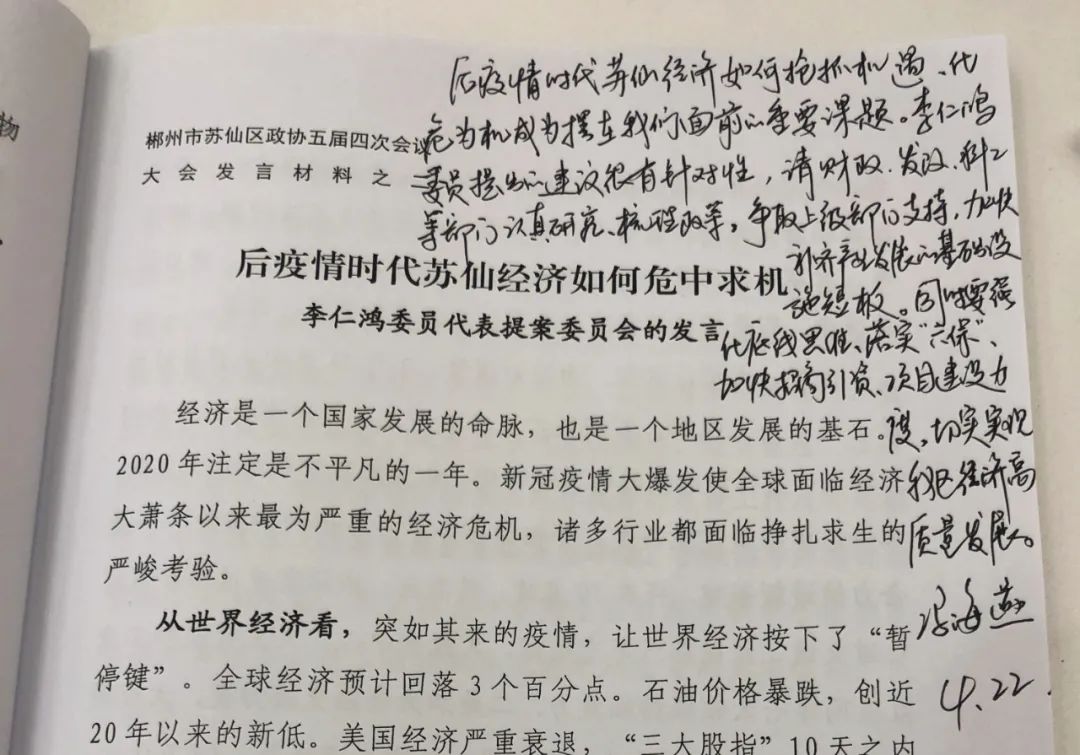 物
后疫情时代苏仙经济如何抢抓机遇、化
危为机成为摆在我们面前的重要课题。李仁鸿
委员提出的建议很有针对性，请财政、发改、科工
等部门认真研究、梳理政策，争取上级部门支持，加快
补齐产业发展的基础设
施短板。同时要强
化底线思维、落实“六保”、
加快招商引资、项目建设力
度，切实实现
我区经济高
质量发展。
冯海燕
4.22.
郴州市苏仙区政协五届四次会议
大会发言材料之一
后疫情时代苏仙经济如何危中求机
李仁鸿委员代表提案委员会的发言
经济是一个国家发展的命脉，也是一个地区发展的基石。
2020年注定是不平凡的一年。新冠疫情大爆发使全球面临经济
大萧条以来最为严重的经济危机，诸多行业都面临挣扎求生的
严峻考验。
从世界经济看，突如其来的疫情，让世界经济按下了“暂
停键”。全球经济预计回落3个百分点。石油价格暴跌，创近
20年以来的新低。美国经济严重衰退，“三大股指”10天之内